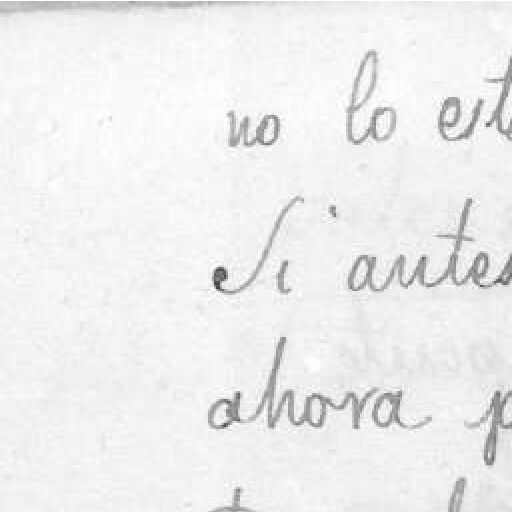 no lo
Si antes
ahora